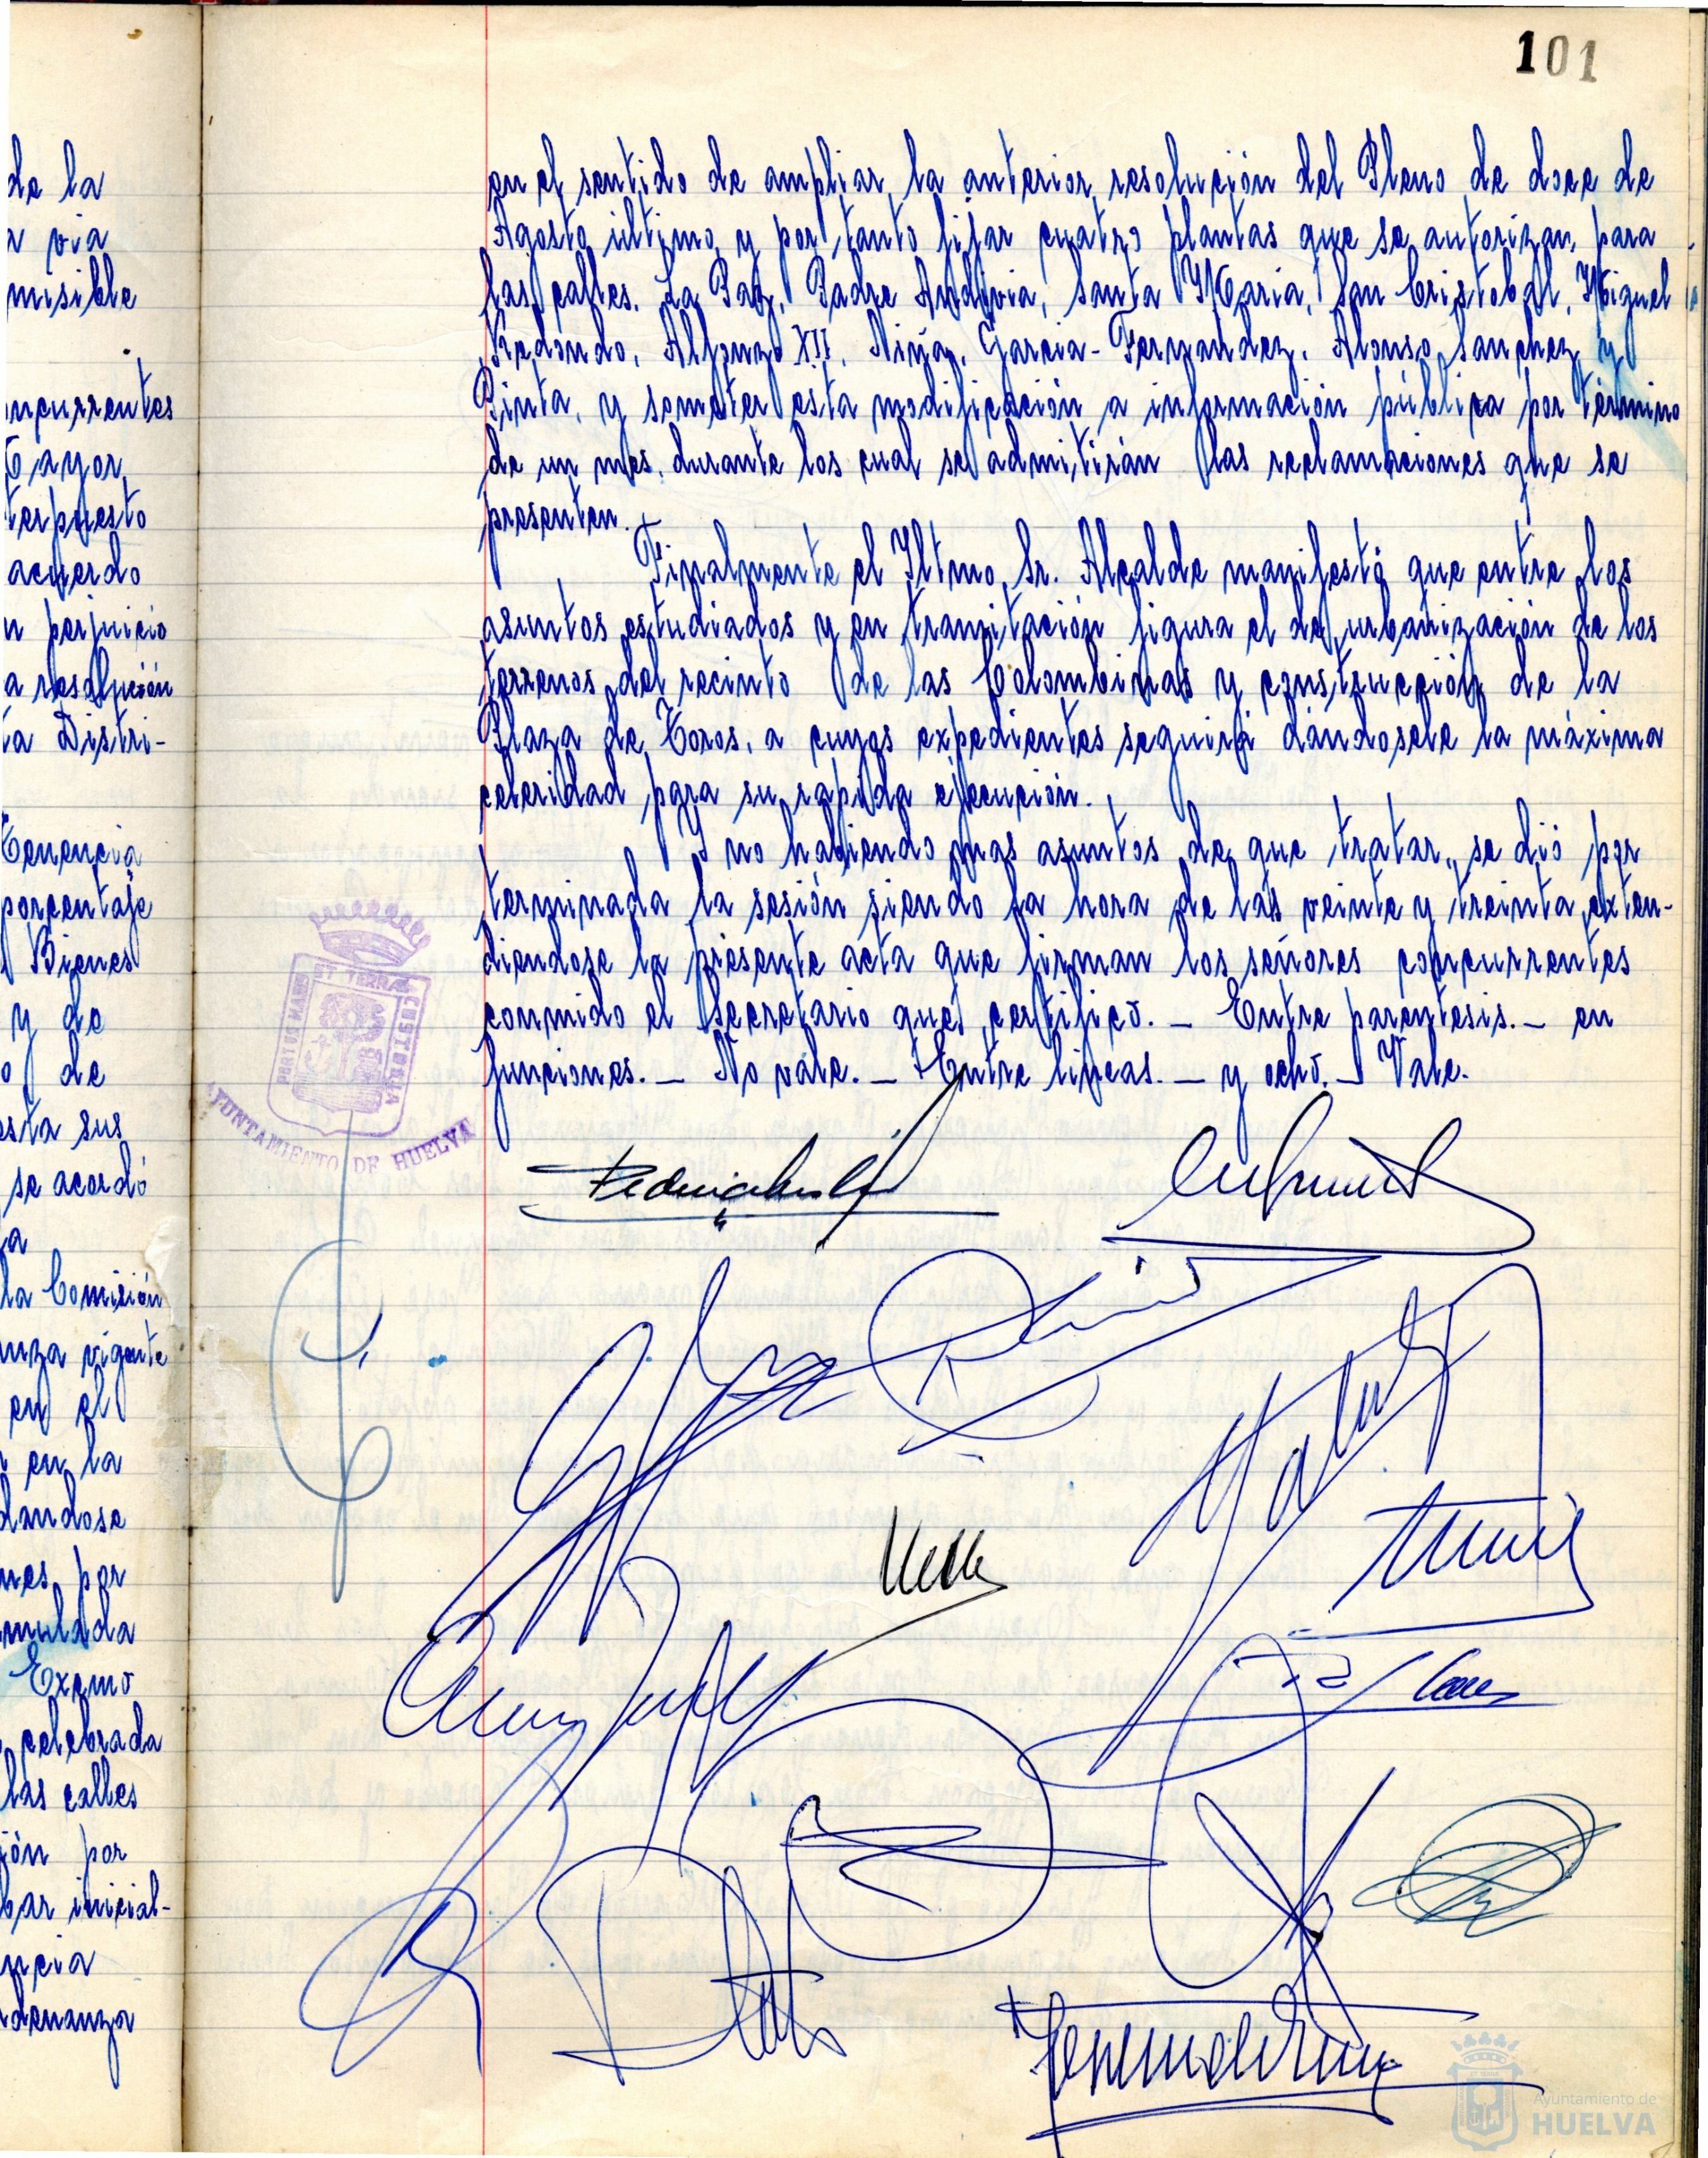 101
de la
via
misible
ncurrentes
Cayor
terpuesto
acuerdo
n perjuicio
a resolución
ta Distri-
Tenencia
porcentaje
Bienes
y de
o de
esta sus
se acordó
a
la Comisión
nza vigente
en el
en la
dandose
nes por
mulada
Excmo
celebrada
las calles
ión por
bar inicial-
ncia
denanza
en el sentido de ampliar la anterior resolución del Pleno de doce de
Agosto último y por tanto fijar cuatro plantas que se autorizan, para
las calles. La Paz, Padre Andivia, Santa Maria, San Cristobal, Miguel
Redondo, Alfonzo XII, Niña, Garcia-Fernandez, Alonso Sanchez y
Pinta, y someter esta modificación a información pública por término
de un mes, durante los cual se admitirán las reclamaciones que se
presenten.
Finalmente el Iltmo, Sr. Alcalde manifestó que entre los
asuntos estudiados y en tramitación figura el de urbanización de los
terrenos del recinto de las Colombinas y construcción de la
Plaza de Toros, a cuyos expedientes seguirá dándosele la máxima
celeridad para su rapida ejecución.
Y no habiendo mas asuntos de que tratar, se dió por
terminada la sesión siendo la hora de las veinte y treinta, exten-
diendose la presente acta que firman los señores concurrentes
conmido el Secretario que certifico. _ Entre parentesis. _ en
funciones. _ No vale. _ Entre lineas. _ y ocho. _ Vale.
PORTUS MARIS ET TERRAE CUSTODIA
AYUNTAMIENTO DE HUELVA
Ayuntamiento de
HUELVA